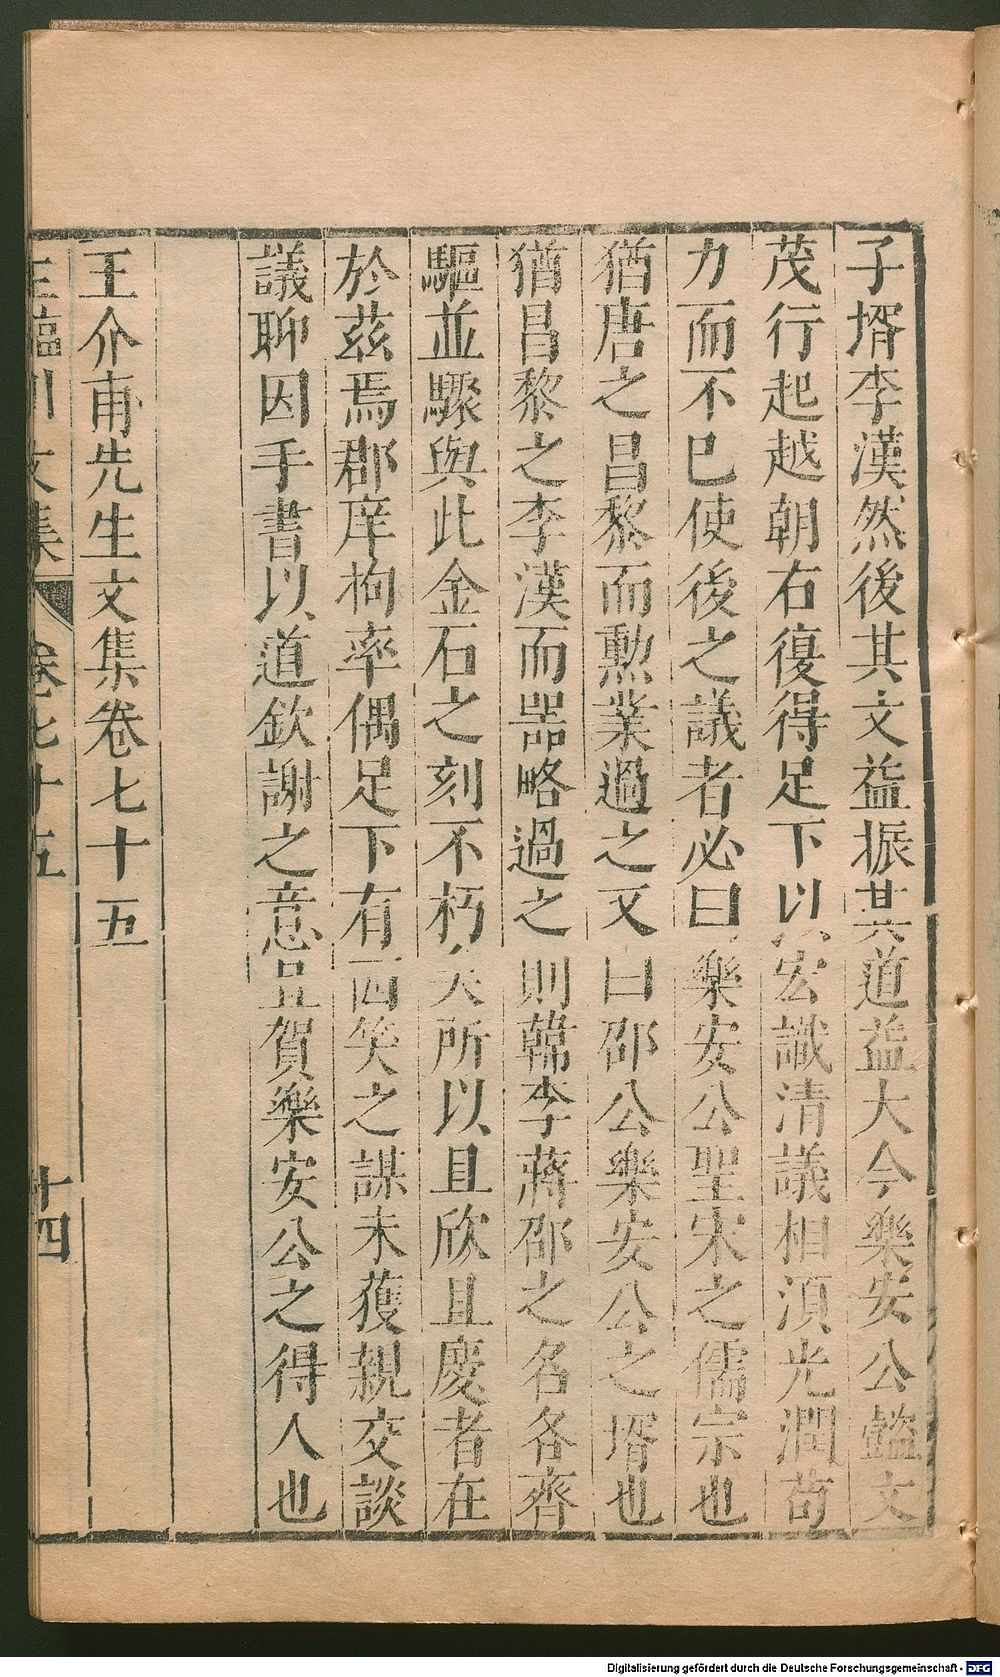 子壻李漢然後其文益振其道益大今樂安公懿文
茂行起越朝右復得足下以宏識清議相湏光潤茍
力而不已使後之議者必曰樂安公聖宋之儒宗也
猶唐之昌黎而勲業過之又曰邵公樂安公之壻也
猶昌黎之李漢而器略過之則韓李蔣邵之名各齊
驅並驟與此金石之刻不朽矣所以且欣且慶者在
於茲焉郡庠拘率偶足下有西笑之謀未獲親交談
議聊因手書以道欽謝之意且賀樂安公之得人也
王介甫先生文集卷七十五
王臨川文集 卷七十五 十四
Digitalisierung gefördert durch die Deutsche Forschungsgemeinschaft - DFG